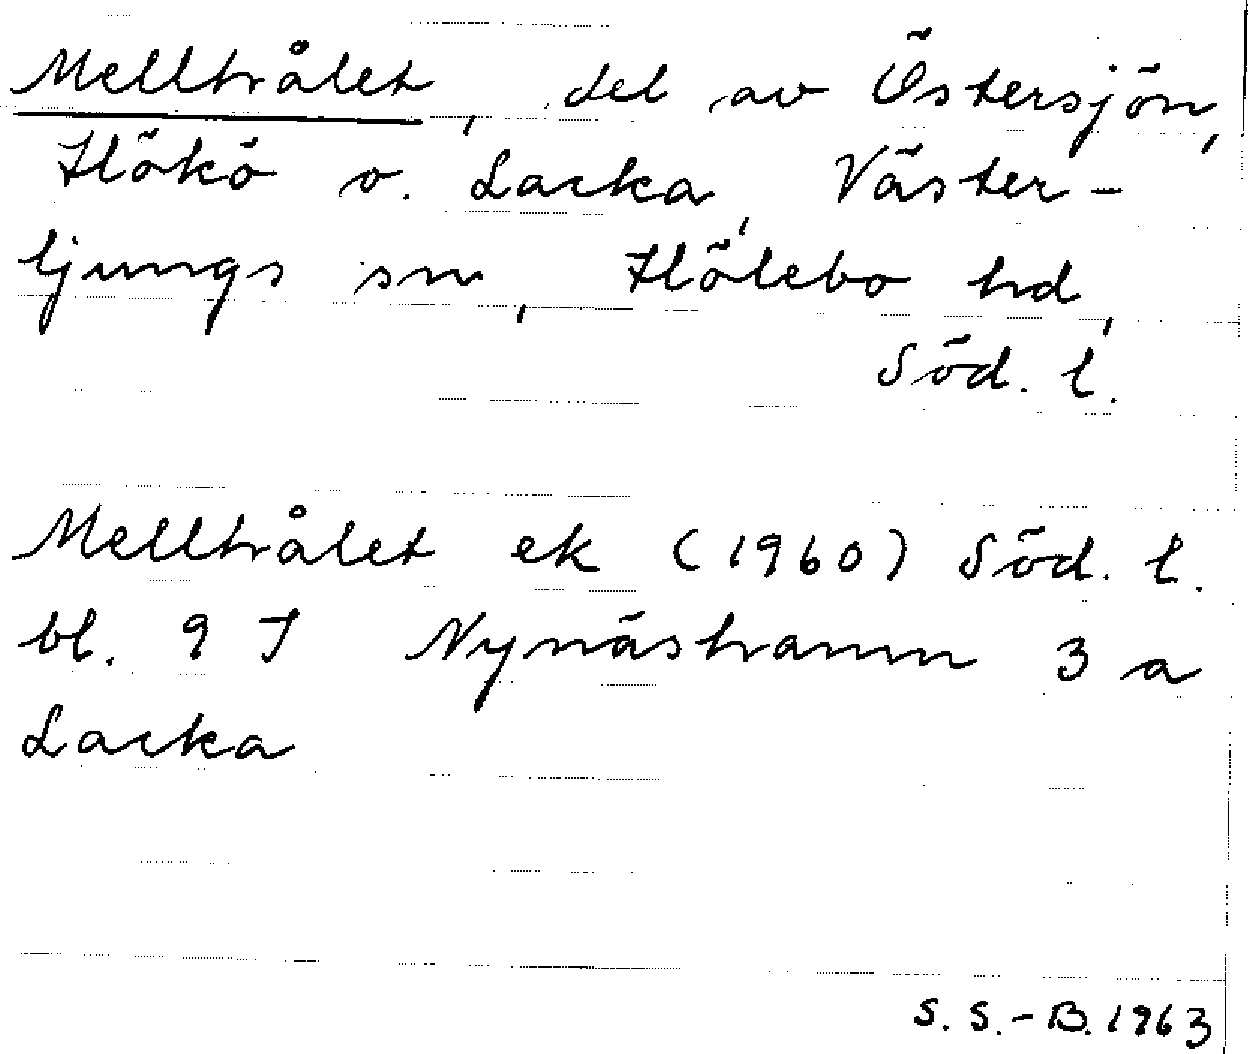 Melltrålet, del av Östersjön,
Hökö o. Lacka, Väster-
ljungs sn, Hölebo hd,
Söd. l.
Melltrålet ek (1960) Söd. l.
bl. 9 I Nynäshamn 3 a
Lacka
S. S.-B. 1963